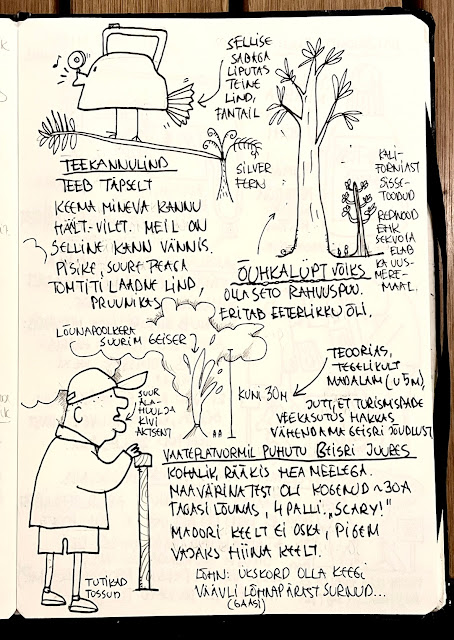 SELLISE
SABAGA
LIPUTAS
TEINE
LIND,
FANTAIL
TEEKANNULIND
TEEB TÄPSELT
KEEMA MINEVA KANNU
HÄÄLT-VILET. MEIL ON
SELLINE KANN VÄNNIS.
PISIKE, SUURE PEAGA
TOMTITI LAADNE LIND,
PRUUNIKAS
SILVER
FERN
KALI-
FORNIAST
SISSE-
TOODUD
REDWOOD
EHK
SEKVOIA
ELAB
KA UUS-
MERE-
MAAL.
ÕUHKALÜPT VÕIKS
OLLA SETO RAHVUSPUU.
ERITAB EETERLIKKU ÕLI.
LÕUNAPOOLKERA
SUURIM GEISER
KUNI 30M
TEOORIAS,
TEGELIKULT
MADALAM (U 5M),
JUTT, ET TURISMISPADE
VEEKASUTUS HAKKAS
VÄHENDAMA GEISRI JÕUDLUST
SUUR
ALA-
HUULJA
KIWI
AKTSENT
VAATEPLATVORMIL PUHUTU GEISRI JUURES
KOHALIK, RÄÄKIS HEA MEELEGA.
MAAVÄRINATEST OLI KOGENUD ~30A
TAGASI LÕUNAS, 4 PALLI. „SCARY!"
MAOORI KEELT EI OSKA, PIGEM
VAJAKS HIINA KEELT.
LÕHN: ÜKSKORD OLLA KEEGI
VÄÄVLI LÕHNA PÄRAST SURNUD...
(GAASI)
TUTIKAD
TOSSUD